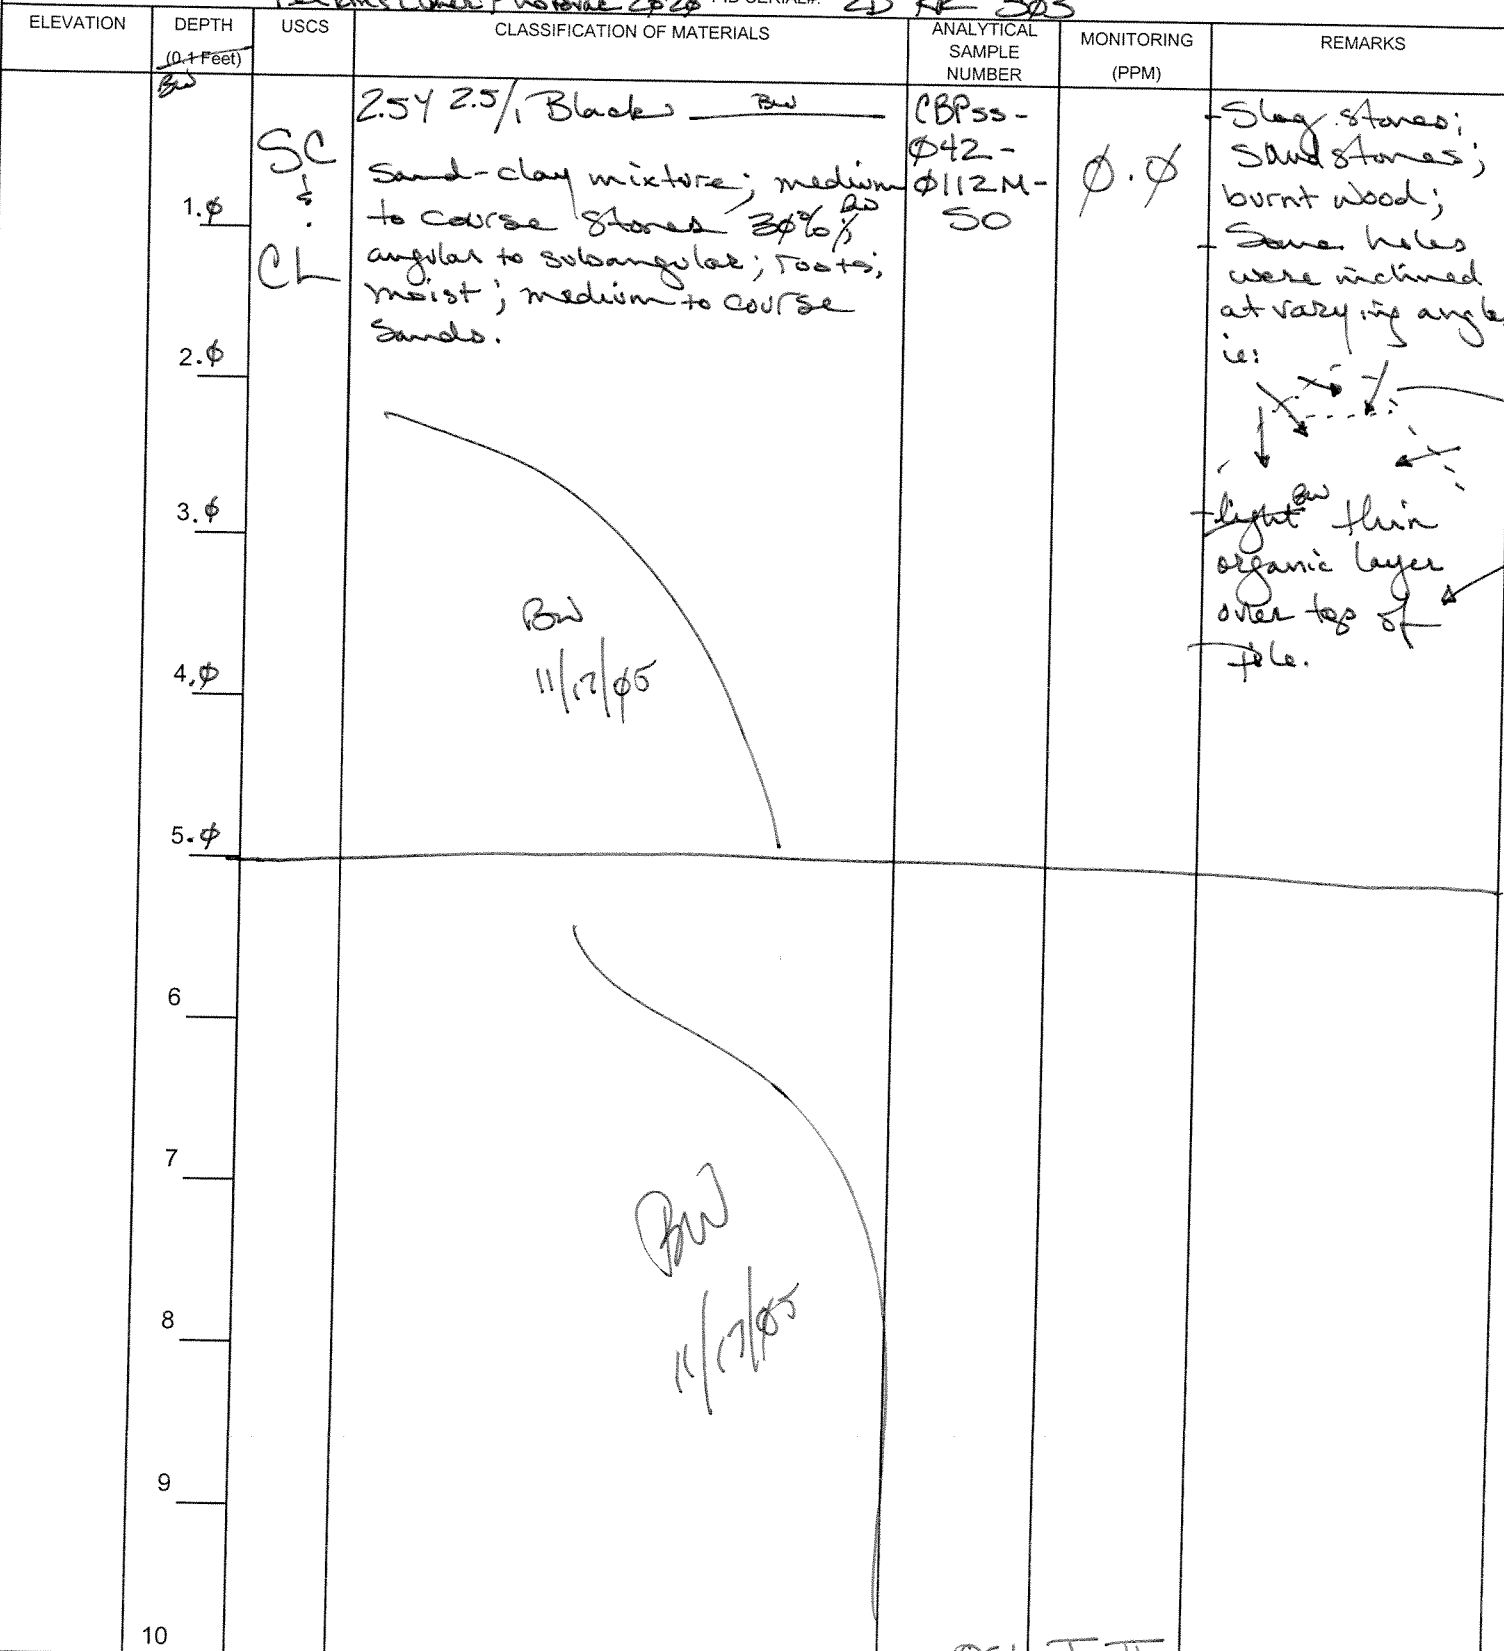 2Ø2Ø PID SERIAL#: ED RR 3Ø3
ELEVATION
DEPTH
(0.1 Feet)
BW
USCS
CLASSIFICATION OF MATERIALS
ANALYTICAL
SAMPLE
NUMBER
MONITORING
(PPM)
REMARKS
SC
&
CL
2.5Y 2.5/1 Black BW
Sand-clay mixture; medium
to course stones 30%; BW
angular to subangular; roots;
moist; medium to course
sands.
CBPss-
Ø42-
Ø112M-
SO
Ø.Ø
- Slag stones;
Sandstones;
burnt wood;
- Some holes
were inclined
at varying angle
ie:
- light BW thin
organic layer
over top of
pile.
1.Ø
2.Ø
3.Ø
4.Ø
5.Ø
6
7
8
9
10
BW
11/17/Ø5
BW
11/17/Ø5